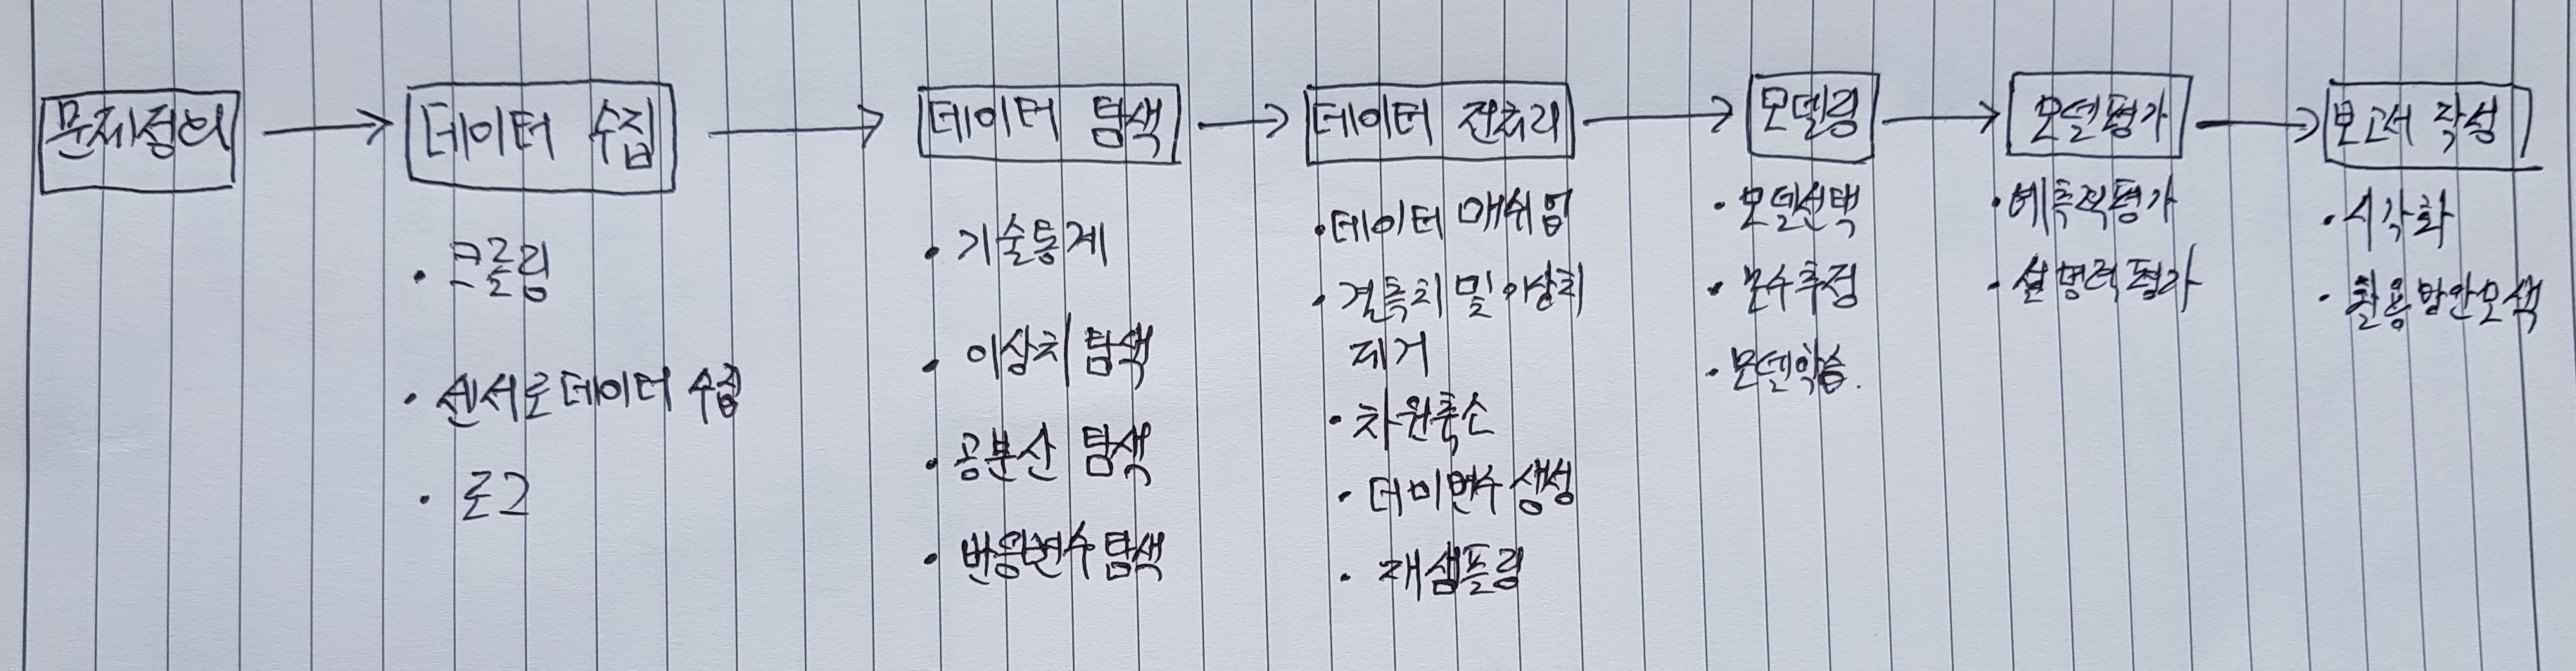 문제정의
데이터 수집
· 크롤링
· 센서로 데이터 수집
· 로그
데이터 탐색
· 기술통계
· 이상치 탐색
· 공분산 탐색
· 반응변수 탐색
데이터 전처리
· 데이터 매쉬업
· 결측치 및 이상치
제거
· 차원축소
· 더미변수 생성
· 재샘플링
모델링
· 모델선택
· 모수추정
· 모델학습.
모델평가
· 예측적평가
· 설명력 평가
보고서 작성
· 시각화
· 활용방안모색